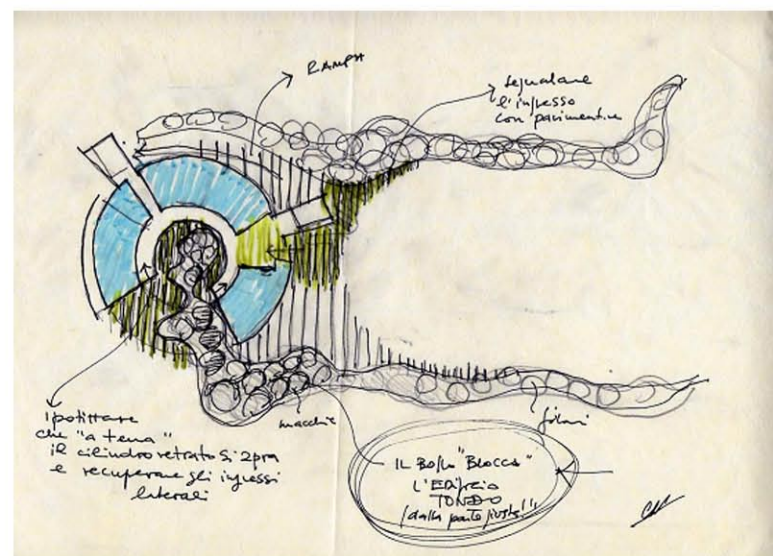 RAMPA
segnalare
l'ingresso
con pavimentine
ipotizzare
che "a terra"
il cilindro vetrato si apra
e recuperare gli ingressi
laterali
macchie
filari
IL BOSCO "BLOCCA"
L'EDIFICIO
TONDO
(dalla parte giusta!)